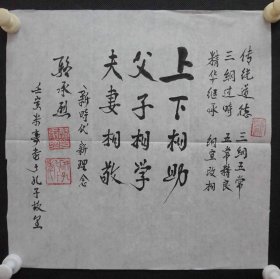 传统道德
三綱五常
三綱过時
五常精良
精华继承
綱宜改相
上下相助
父子相学
夫妻相敬
新時代新理念
駱承烈
壬寅
孔子故里